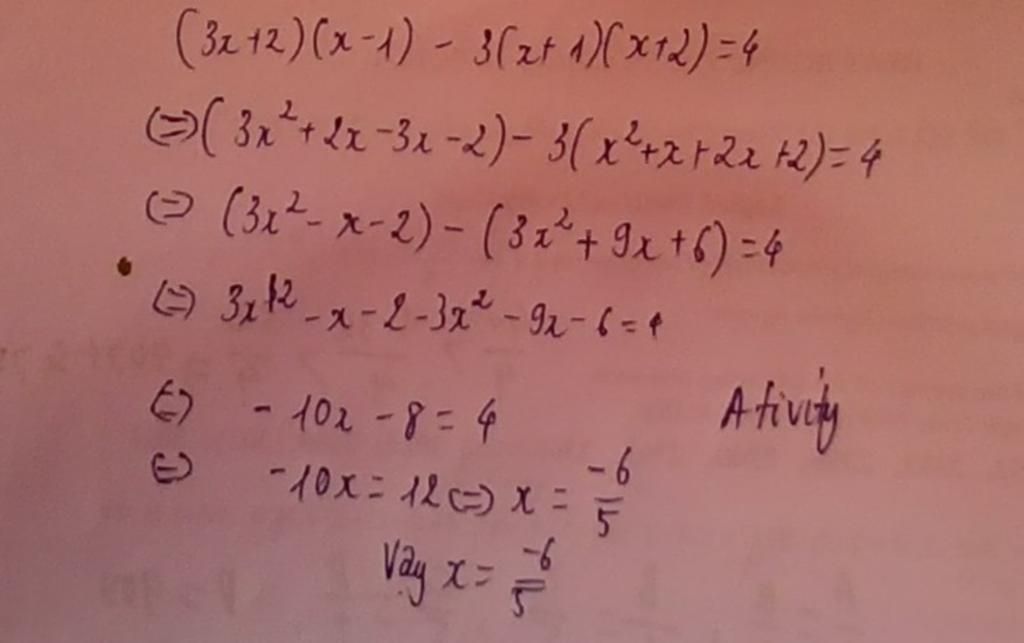 (3x+2)(x-1) - 3(x+1)(x+2)=4
⇔(3x²+2x-3x-2)-3(x²+x+2x+2)=4
⇔ (3x²-x-2)-(3x²+9x+6)=4
⇔ 3x²-x-2-3x²-9x-6=4
⇔ -10x-8=4
Ativity
⇔ -10x=12⇔x=-6/5
Vậy x=-6/5